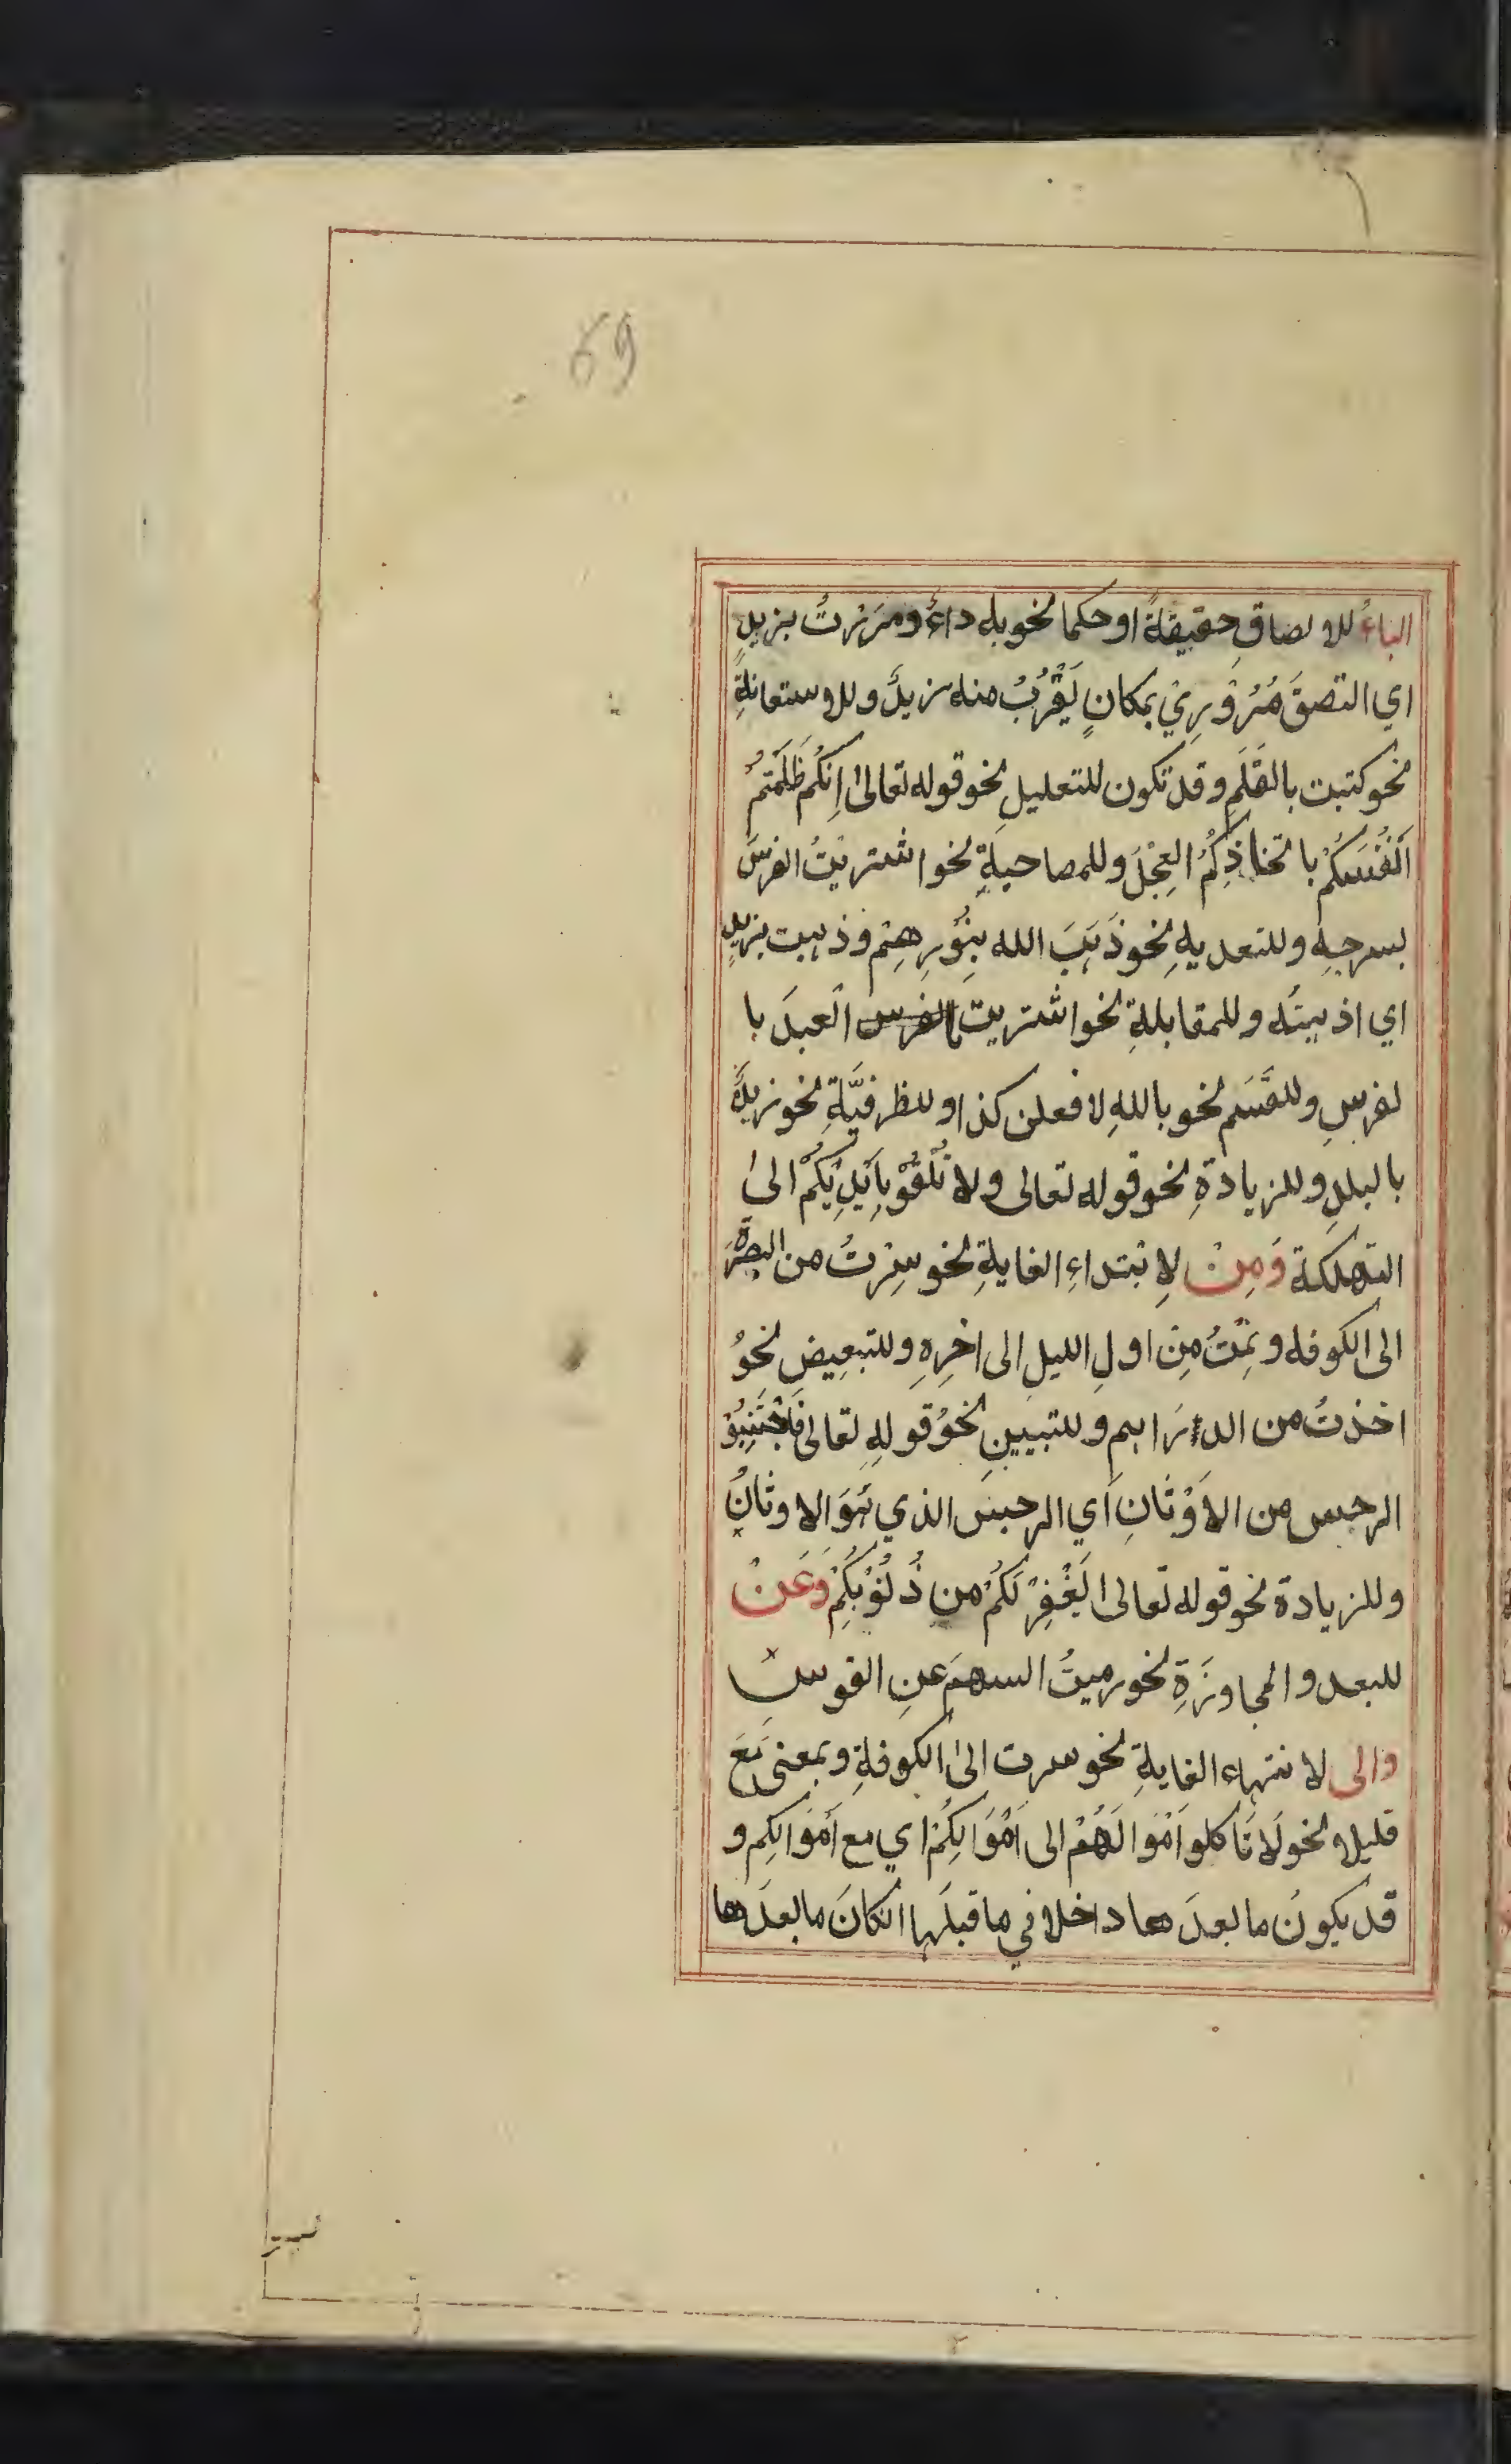 69
الباءُ للالصاقِ حقيقةً او حكما نحو به داءٌ ومَرَرْتُ بزيدٍ
اي التصقَ مُرُوْرِيْ بمكانٍ يَقْرُبُ منه زيدٌ وللاستعانةِ
نحو كتبت بالقَلَمِ وقد تكون للتعليلِ نحو قوله تعالىٰ اِنكُم ظَلَمْتُم
اَنْفُسَكُمْ باتخاذِكُمُ العِجْلَ وللمصاحبةِ نحو اشتريْتُ الفرسَ
بسرجِهِ وللتعديةِ نحو ذَهَبَ الله بِنُوْرِهِمْ وذهبت بزيدٍ
اي اذهبتُه وللمقابلةِ نحو اشتريت بالفرس العبدَ با
لفرسِ وللقَسَم نحو باللهِ لافعلن كذا وللظرفيَّةِ نحو زيدٌ
بالبلدِ وللزيادةِ نحو قوله تعالى ولا تُلْقُوْ بِاَيْدِيْكُمْ الىٰ
التهلكة وَمِنْ لِابتداءِ الغايةِ نحو سِرْتُ من البصرَة
الى الكوفه ونِمْتُ مِن اولِ الليلِ الى اٰخرِهِ وللتبعيض نحوُ
اخذتُ من الدرَاهم وللتبيينِ نحوُ قولهِ تعالى فَاجْتَنِبُوْ
الرجس من الاَوْثَانِ اَي الرجسَ الذي هُوَ الاوثانُ
وللزيادة نحو قوله تعالى يَغْفِرْ لَكُمْ من ذُنُوْبِكُمْ وَعَنْ
للبعد والمجاوزَةِ نحو رميتُ السهمَ عنِ القوس
والى لانتهاء الغايةِ نحو سرت الىٰ الكوفةِ وبمعنىٰ مَعَ
قليلا نحو لَا تَاكلو اَمْوَالَهُمْ الى اَمْوَالِكُمْ اي مع اَمْوَالِكم و
قد يكونُ ما بعدَها داخلا في ما قبلَها انكانَ ما بعدَها